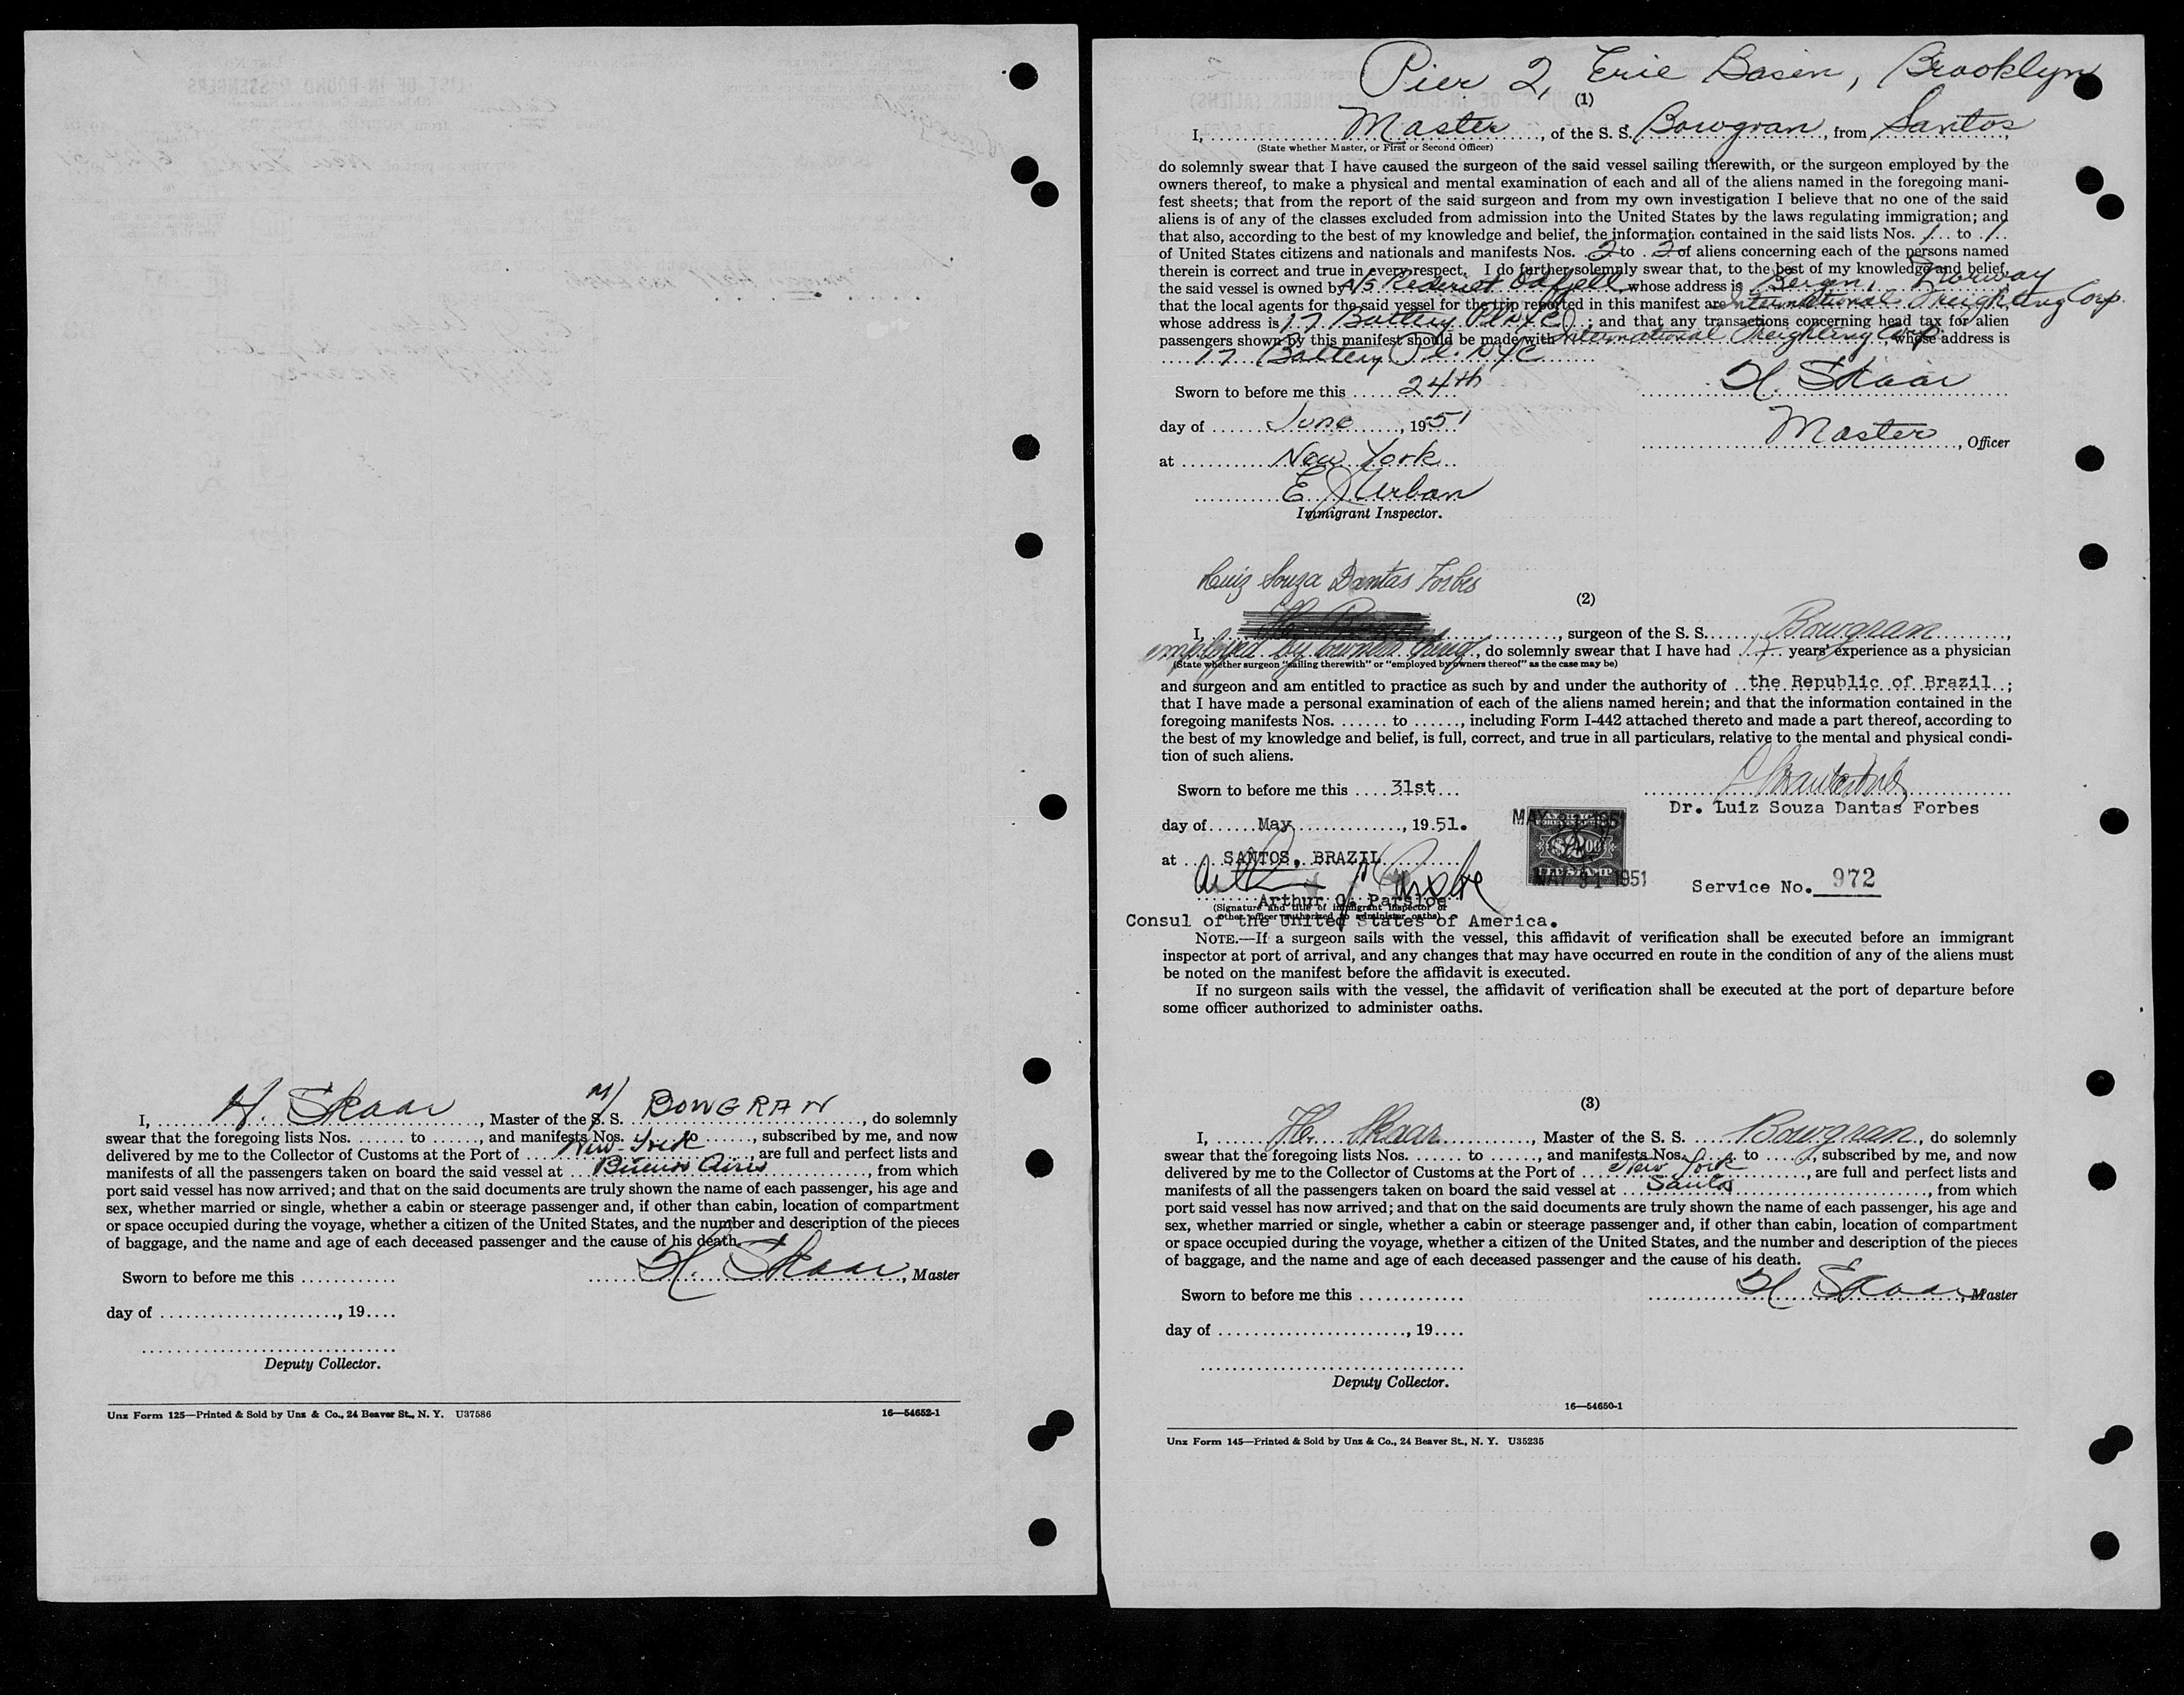 I, H. Skaar, Master of the S. S. M/ BOWGRAN, do solemnly
swear that the foregoing lists Nos. ...... to ......, and manifests Nos. ...... to ......, subscribed by me, and now
delivered by me to the Collector of Customs at the Port of New-York, are full and perfect lists and
manifests of all the passengers taken on board the said vessel at Buenos Aires, from which
port said vessel has now arrived; and that on the said documents are truly shown the name of each passenger, his age and
sex, whether married or single, whether a cabin or steerage passenger and, if other than cabin, location of compartment
or space occupied during the voyage, whether a citizen of the United States, and the number and description of the pieces
of baggage, and the name and age of each deceased passenger and the cause of his death.
Sworn to before me this ............ H. Skaar, Master
day of ...................., 19....
Deputy Collector.
Unz Form 125—Printed & Sold by Unz & Co., 24 Beaver St., N. Y. U37586 16—54652-1
Pier 2, Erie Basin, Brooklyn
(1)
I, Master, of the S. S. Bowgran, from Santos,
(State whether Master, or First or Second Officer)
do solemnly swear that I have caused the surgeon of the said vessel sailing therewith, or the surgeon employed by the
owners thereof, to make a physical and mental examination of each and all of the aliens named in the foregoing mani-
fest sheets; that from the report of the said surgeon and from my own investigation I believe that no one of the said
aliens is of any of the classes excluded from admission into the United States by the laws regulating immigration; and
that also, according to the best of my knowledge and belief, the information contained in the said lists Nos. 1 to 1
of United States citizens and nationals and manifests Nos. 2 to 2 of aliens concerning each of the persons named
therein is correct and true in every respect. I do further solemnly swear that, to the best of my knowledge and belief,
the said vessel is owned by A/S Rederiet Odfjell whose address is Bergen, Norway
that the local agents for the said vessel for the trip reported in this manifest are International Freighting Corp.
whose address is 17 Battery Pl NYC; and that any transactions concerning head tax for alien
passengers shown by this manifest should be made with International Freighting Corp, whose address is
17 Battery Pl. NYC
Sworn to before me this 24th H. Skaar
day of June, 1951 Master, Officer
at New York
E J Urban
Immigrant Inspector.
Luiz Souza Dantas Forbes
(2)
I, ......, surgeon of the S. S. Bowgran,
employed by owners thereof, do solemnly swear that I have had ...... years' experience as a physician
(State whether surgeon "sailing therewith" or "employed by owners thereof" as the case may be)
and surgeon and am entitled to practice as such by and under the authority of the Republic of Brazil;
that I have made a personal examination of each of the aliens named herein; and that the information contained in the
foregoing manifests Nos. ...... to ......, including Form I-442 attached thereto and made a part thereof, according to
the best of my knowledge and belief, is full, correct, and true in all particulars, relative to the mental and physical condi-
tion of such aliens.
Sworn to before me this 31st
Dr. Luiz Souza Dantas Forbes
day of May, 1951.
at SANTOS, BRAZIL
$2.00
FEE STAMP
MAY 31 1951
Service No. 972
Arthur G. Parsloe
(Signature and title of immigrant inspector or
other officer authorized to administer oaths)
Consul of the United States of America.
NOTE.—If a surgeon sails with the vessel, this affidavit of verification shall be executed before an immigrant
inspector at port of arrival, and any changes that may have occurred en route in the condition of any of the aliens must
be noted on the manifest before the affidavit is executed.
If no surgeon sails with the vessel, the affidavit of verification shall be executed at the port of departure before
some officer authorized to administer oaths.
(3)
I, H. Skaar, Master of the S. S. Bowgran, do solemnly
swear that the foregoing lists Nos. ...... to ......, and manifests Nos. ...... to ......, subscribed by me, and now
delivered by me to the Collector of Customs at the Port of New York, are full and perfect lists and
manifests of all the passengers taken on board the said vessel at Santos, from which
port said vessel has now arrived; and that on the said documents are truly shown the name of each passenger, his age and
sex, whether married or single, whether a cabin or steerage passenger and, if other than cabin, location of compartment
or space occupied during the voyage, whether a citizen of the United States, and the number and description of the pieces
of baggage, and the name and age of each deceased passenger and the cause of his death.
Sworn to before me this ............. H Skaar, Master
day of ......................, 19....
Deputy Collector.
16—54650-1
Unz Form 145—Printed & Sold by Unz & Co., 24 Beaver St., N. Y. U35235